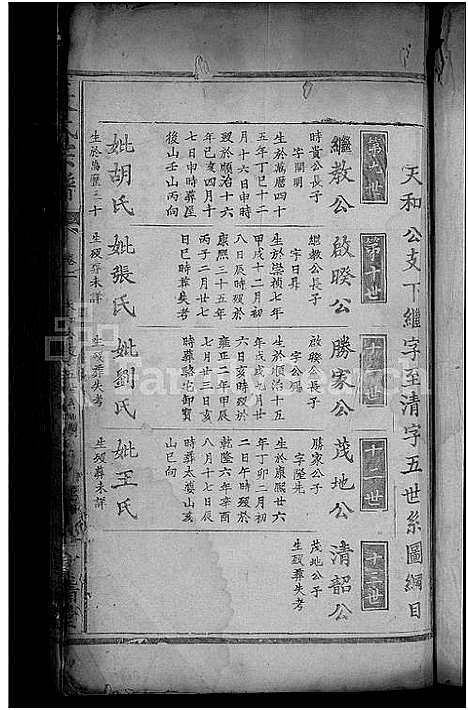 天和公支下繼字至清字五世系圖綱目
第九世
繼教公
時貴公長子
字開明
生於萬曆四十
五年丁巳十二
月十六日申時
歿於順治十六
年己亥四月十
七日申時葬屋
後山壬山丙向
妣胡氏
生於萬曆三十
第十世
啟睽公
繼教公長子
字日昇
生於崇禎七年
甲戌十二月初
八日辰時歿於
康熙三十五年
丙子二月廿七
日巳時葬失考
妣張氏
生歿葬未詳
十一世
勝家公
啟睽公長子
字公錫
生於順治十五
年戊戌九月廿
六日亥時歿於
雍正二年癸卯
七月廿三日亥
時葬駱佗卸寶
妣劉氏
生歿葬失考
十二世
茂地公
勝家公子
字隆先
生於康熙廿六
年丁卯二月初
二日午時歿於
乾隆六年辛酉
八月十七日辰
時葬太婆山亥
山巳向
妣王氏
生歿葬未詳
十三世
清韶公
茂地公子
生歿葬失考
宗譜